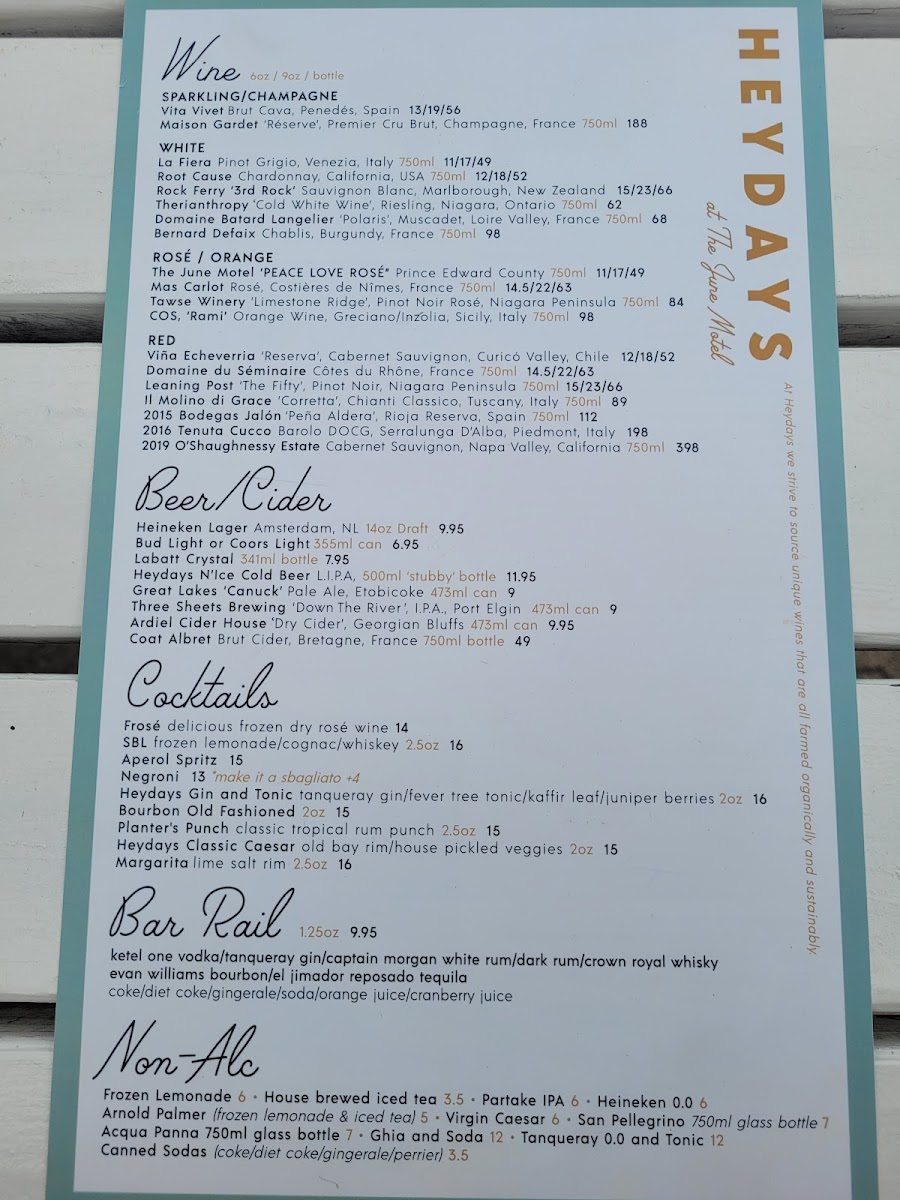 HEYDAYS
at The June Motel
At Heydays we strive to source unique wines that are all farmed organically and sustainably.
Wine 6oz / 9oz / bottle
SPARKLING/CHAMPAGNE
Vita Vivet Brut Cava, Penedés, Spain 13/19/56
Maison Gardet 'Réserve', Premier Cru Brut, Champagne, France 750ml 188
WHITE
La Fiera Pinot Grigio, Venezia, Italy 750ml 11/17/49
Root Cause Chardonnay, California, USA 750ml 12/18/52
Rock Ferry '3rd Rock' Sauvignon Blanc, Marlborough, New Zealand 15/23/66
Therianthropy 'Cold White Wine', Riesling, Niagara, Ontario 750ml 62
Domaine Batard Langelier 'Polaris', Muscadet, Loire Valley, France 750ml 68
Bernard Defaix Chablis, Burgundy, France 750ml 98
ROSÉ / ORANGE
The June Motel 'PEACE LOVE ROSÉ" Prince Edward County 750ml 11/17/49
Mas Carlot Rosé, Costières de Nîmes, France 750ml 14.5/22/63
Tawse Winery 'Limestone Ridge', Pinot Noir Rosé, Niagara Peninsula 750ml 84
COS, 'Rami' Orange Wine, Greciano/Inzolia, Sicily, Italy 750ml 98
RED
Viña Echeverria 'Reserva', Cabernet Sauvignon, Curicó Valley, Chile 12/18/52
Domaine du Séminaire Côtes du Rhône, France 750ml 14.5/22/63
Leaning Post 'The Fifty', Pinot Noir, Niagara Peninsula 750ml 15/23/66
Il Molino di Grace 'Corretta', Chianti Classico, Tuscany, Italy 750ml 89
2015 Bodegas Jalón 'Peña Aldera', Rioja Reserva, Spain 750ml 112
2016 Tenuta Cucco Barolo DOCG, Serralunga D'Alba, Piedmont, Italy 198
2019 O'Shaughnessy Estate Cabernet Sauvignon, Napa Valley, California 750ml 398
Beer/Cider
Heineken Lager Amsterdam, NL 14oz Draft 9.95
Bud Light or Coors Light 355ml can 6.95
Labatt Crystal 341ml bottle 7.95
Heydays N'Ice Cold Beer L.I.P.A, 500ml 'stubby' bottle 11.95
Great Lakes 'Canuck' Pale Ale, Etobicoke 473ml can 9
Three Sheets Brewing 'Down The River', I.P.A., Port Elgin 473ml can 9
Ardiel Cider House 'Dry Cider', Georgian Bluffs 473ml can 9.95
Coat Albret Brut Cider, Bretagne, France 750ml bottle 49
Cocktails
Frosé delicious frozen dry rosé wine 14
SBL frozen lemonade/cognac/whiskey 2.5oz 16
Aperol Spritz 15
Negroni 13 *make it a sbagliato +4
Heydays Gin and Tonic tanqueray gin/fever tree tonic/kaffir leaf/juniper berries 2oz 16
Bourbon Old Fashioned 2oz 15
Planter's Punch classic tropical rum punch 2.5oz 15
Heydays Classic Caesar old bay rim/house pickled veggies 2oz 15
Margarita lime salt rim 2.5oz 16
Bar Rail 1.25oz 9.95
ketel one vodka/tanqueray gin/captain morgan white rum/dark rum/crown royal whisky
evan williams bourbon/el jimador reposado tequila
coke/diet coke/gingerale/soda/orange juice/cranberry juice
Non-Alc
Frozen Lemonade 6 • House brewed iced tea 3.5 • Partake IPA 6 • Heineken 0.0 6
Arnold Palmer (frozen lemonade & iced tea) 5 • Virgin Caesar 6 • San Pellegrino 750ml glass bottle 7
Acqua Panna 750ml glass bottle 7 • Ghia and Soda 12 • Tanqueray 0.0 and Tonic 12
Canned Sodas (coke/diet coke/gingerale/perrier) 3.5